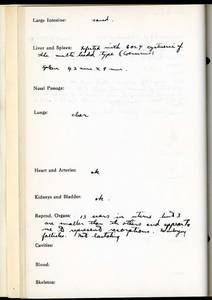 Large Intestine: sand.
Liver and Spleen: Infected with 6 or 7 cysticerci of
the multi-headed type (Coenurus)
Spleen 42 mm x 9 mm.
Nasal Passage:
Lungs: clear
Heart and Arteries: ok
Kidneys and Bladder: ok.
Reprod. Organs: 13 scars in uterus but 3
are smaller than the others and apparently
do represent resorptions.
follicles. Not lactating
Cavities:
Blood:
Skeleton: